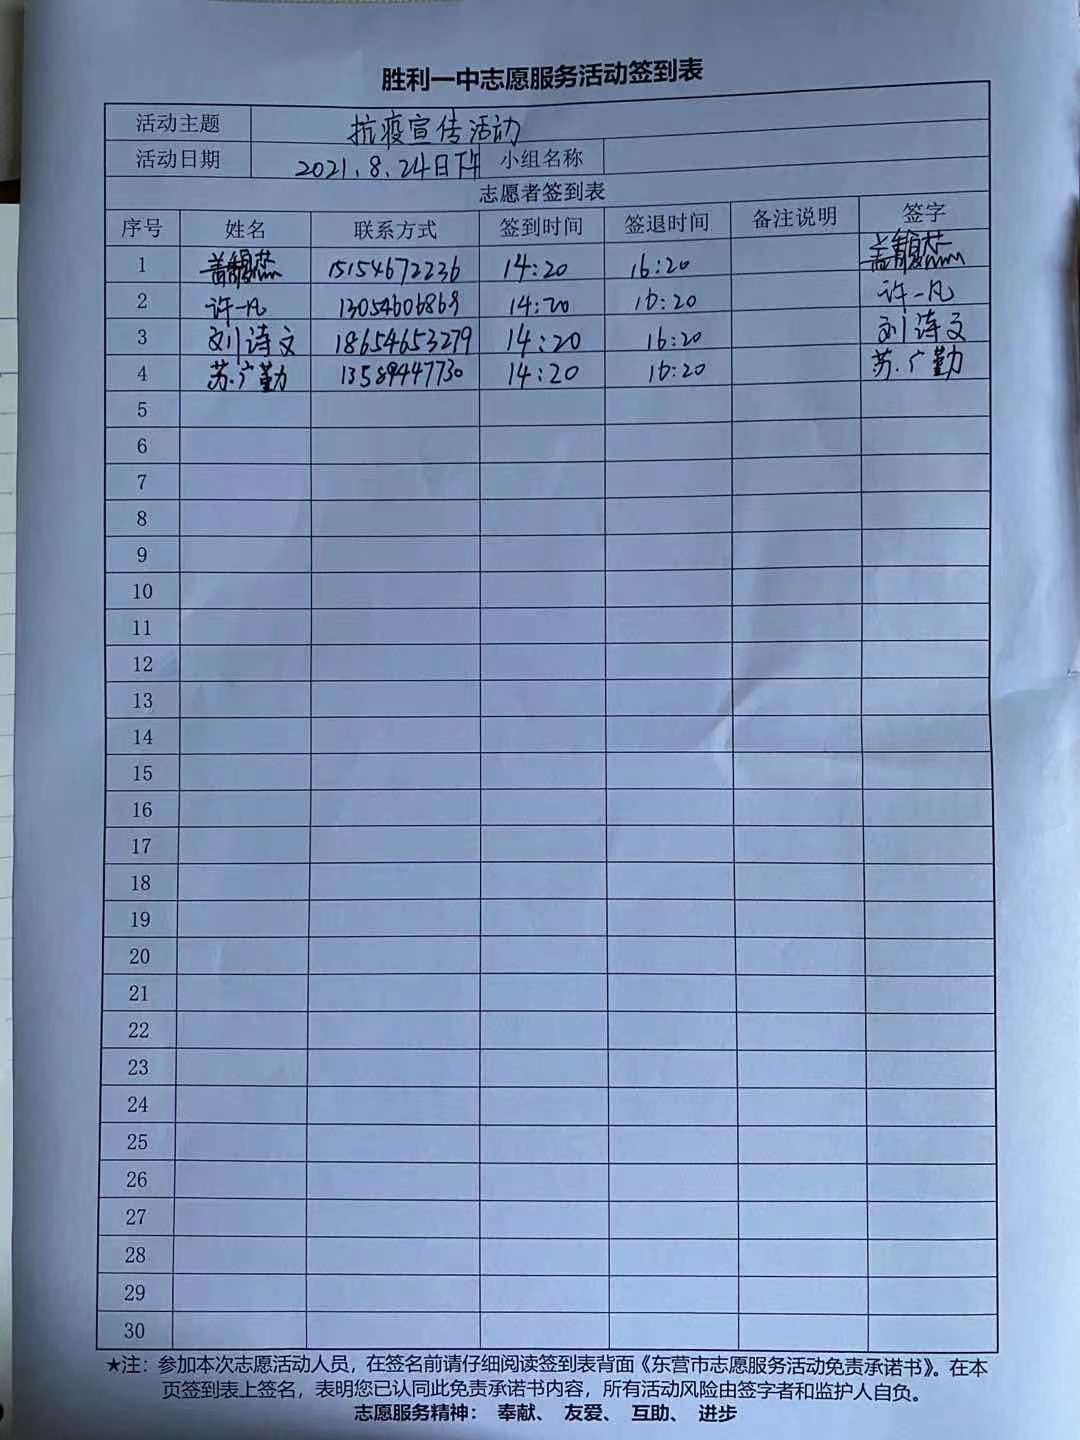 胜利一中志愿服务活动签到表
活动主题 抗疫宣传活动
活动日期 2021.8.24日下午 小组名称
志愿者签到表
序号 姓名 联系方式 签到时间 签退时间 备注说明 签字
1 15154672236 14:20 16:20
2 许一凡 13054606869 14:20 16:20 许一凡
3 刘诗文 18654653279 14:20 16:20 刘诗文
4 苏广勤 13589447730 14:20 16:20 苏广勤
5
6
7
8
9
10
11
12
13
14
15
16
17
18
19
20
21
22
23
24
25
26
27
28
29
30
★注：参加本次志愿活动人员，在签名前请仔细阅读签到表背面《东营市志愿服务活动免责承诺书》。在本
页签到表上签名，表明您已认同此免责承诺书内容，所有活动风险由签字者和监护人自负。
志愿服务精神： 奉献、 友爱、 互助、 进步